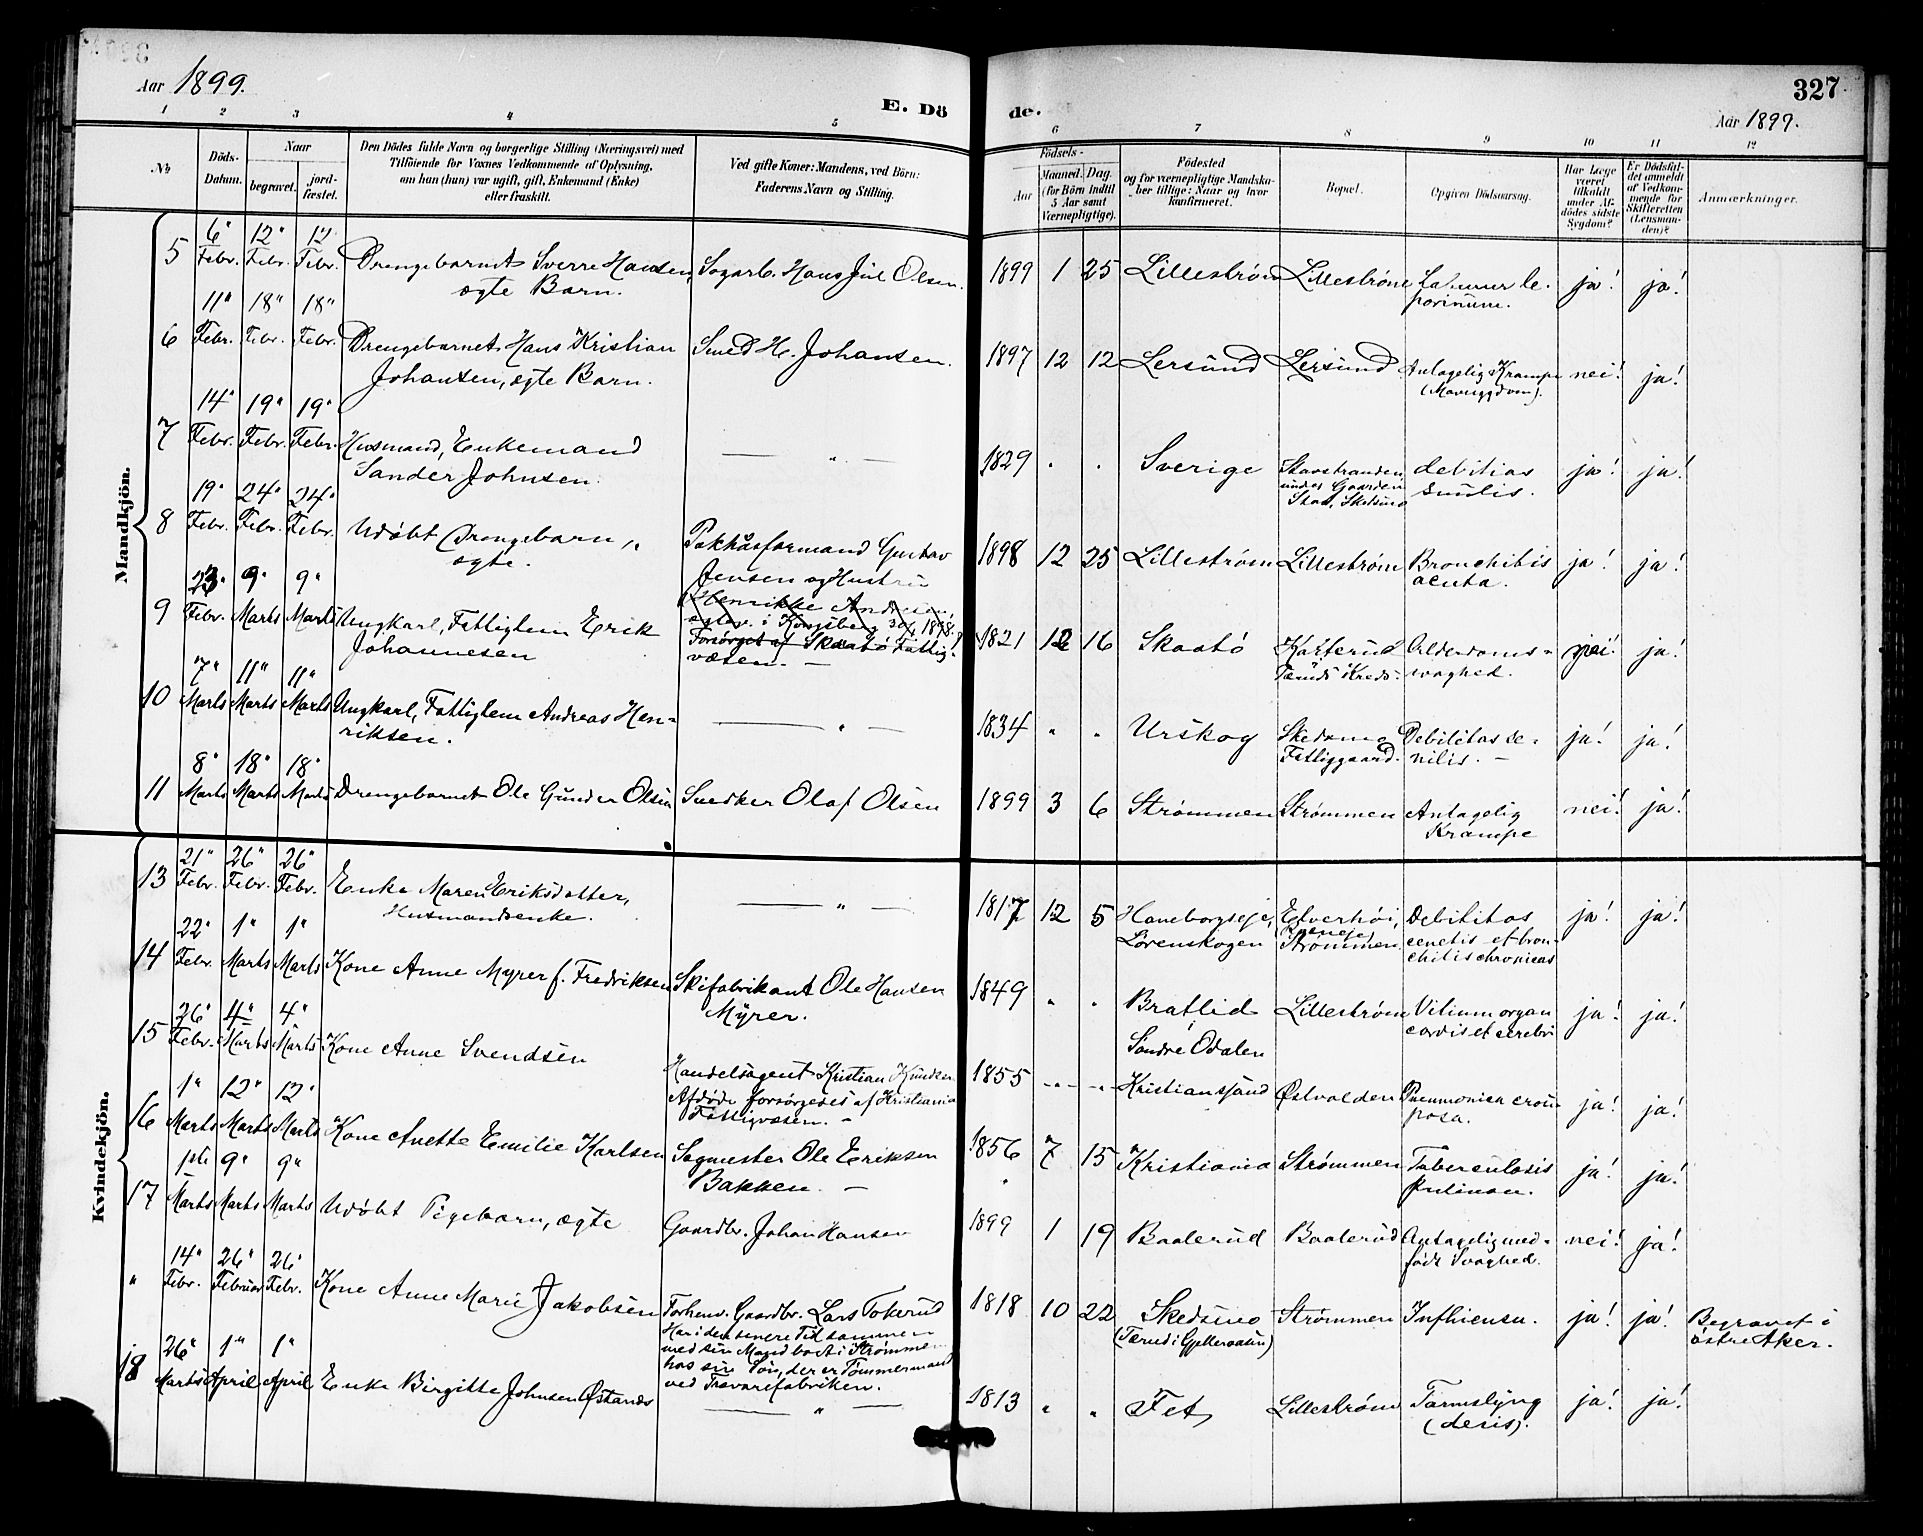 Aar 1899.
E. Dö
de.
327
Aar 1899.
1 2 3 4 5 6 7 8 9 10 11 12
No
Döds-
Datum.
Naar
begravet.
jord-
fæstet.
Den Dödes fulde Navn og borgerlige Stilling (Næringsvei) med
Tilföiende for Voxnes Vedkommende af Oplysning,
om han (hun) var ugift, gift, Enkemand (Enke)
eller fraskilt.
Ved gifte Koner: Mandens, ved Börn:
Faderens Navn og Stilling.
Födsels-
Aar
Maaned. Dag.
(for Börn indtil
5 Aar samt
Værnepligtige).
Födested
og for værnepligtige Mandska-
ber tillige: Naar og hvor
konfirmeret.
Bopæl.
Opgiven Dödsaarsag.
Har Læge
været
tilkaldt
under Af-
dödes sidste
Sygdom?
Er Dödsfal-
det anmeldt
af Vedkom-
mende for
Skifteretten
(Lensman-
den)?
Anmærkninger.
Mandkjön.
5 6" Febr. 12" Febr. 12 Febr. Drengebarnet Sverre Hansen,
ægte Barn.
Hans Jul Olsen.
1899 1 25 Lillestrøm Lillestrøm
ja! ja!
6 11" Febr. 18" Febr. 18" Febr. Drengebarnet Hans Kristian
Johansen, ægte Barn.
Smed H. Johansen.
1897 12 12 Lersund Lersund Antagelig Krampe
nei! ja!
7 14" Febr. 19" Febr. 19" Febr. Husmand, Enkemand
Sander Johnsen.
— " —
1829 " " Sverige
under Gaarden
Skedsmo
debilitas
senilis.
ja! ja!
8 19" Febr. 24" Febr. 24" Febr. Udøbt Drengebarn,
ægte.
Pakhusformand Gustav
Jensen og Hustru
Henrikke
1898.
1898 12 25 Lillestrøm Lillestrøm Bronchitis
acuta.
ja! ja!
9 23" Febr. 9" Marts 9" Marts Ungkarl, Fattiglem Erik
Johannesen
Forsørget af Skaatø Fattig-
væsen. —
1821 12 16 Skaatø
Kreds
Alderdoms-
svaghed.
nei! ja!
10 7" Marts 11" Marts 11" Marts Ungkarl, Fattiglem Andreas Hen-
riksen.
— " —
1834 " " Urskog Skedsmo
Fattiggaard.
Debilitas se-
nilis. —
ja! ja!
11 8" Marts 18" Marts 18" Marts Drengebarnet Ole Gunder Olsen
Snedker Olaf Olsen
1899 3 6 Strømmen Strømmen Antagelig
Krampe
nei! ja!
Kvindekjön.
13 21" Febr. 26" Febr. 26" Febr. Enke Maren Eriksdatter,
Husmandsenke.
— " —
1817 12 5 Haneborgseje,
Lørenskogen
Strømmen.
Debilitas
et bron-
chitis chronicas
ja! ja!
14 22" Febr. 1" Marts 1" Marts Kone Anne Myrer f. Fredriksen
Skifabrikant Ole Hansen
Myrer.
1849 " " Bratlid
Søndre Odalen
Lillestrøm Vitium organ
cordis et cerebri
ja! ja!
15 26" Febr. 4" Marts 4" Marts Kone Anne Svendsen
Handelsagent Kristian Knudsen
Afdøde forsørgedes af Kristiania
Fattigvæsen. —
1855 " " Kristianssund Østvolden Pneumonica crou
posa.
ja! ja!
16 1" Marts 12" Marts 12" Marts Kone Anette Emilie Karlsen
Sagmester Ole Eriksen
Bakken. —
1856 7 15 Kristiania Strømmen Tuberculosis
pulmon.
ja! ja!
17 1ste Marts 9" Marts 9" Marts Udøbt Pigebarn, ægte
Gaardbr. Johan Hansen
1899 1 19 Baalerud Baalerud Antagelig med-
født Svaghed.
nei! ja!
" 14" Febr. 26" Februar 26" Febr. Kone Anne Marie Jakobsen
Forhenv. Gaardbr. Lars Tokerud
Har i den senere Tid sammen
med sin Mand boet i Strømmen
hos sin Søn, der er Tømmermand
ved Trævarefabriken.
1818 10 22 Skedsmo
Strømmen Influensa.
ja! ja! Begravet i
østre Aker.
18 26" Marts 1" April 1" April Enke Birgitte Johnsen Østands
— " —
1813 " " Fet Lillestrøm Tarmslyng
ja! ja!